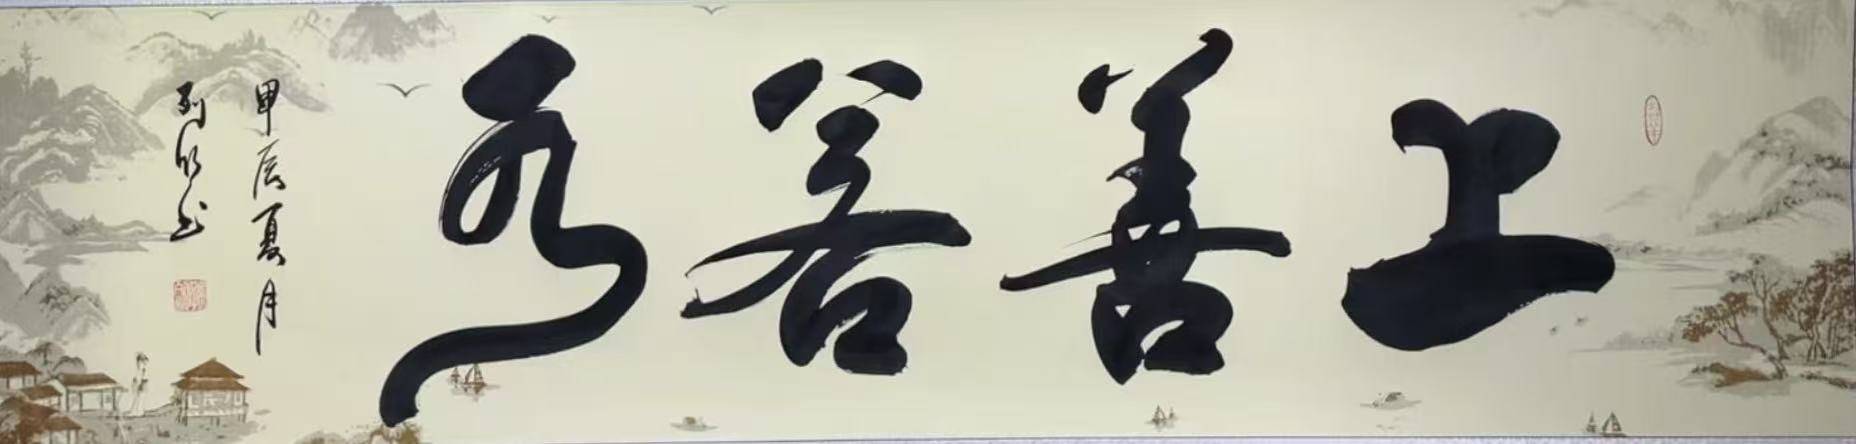 上善若水
甲辰夏月